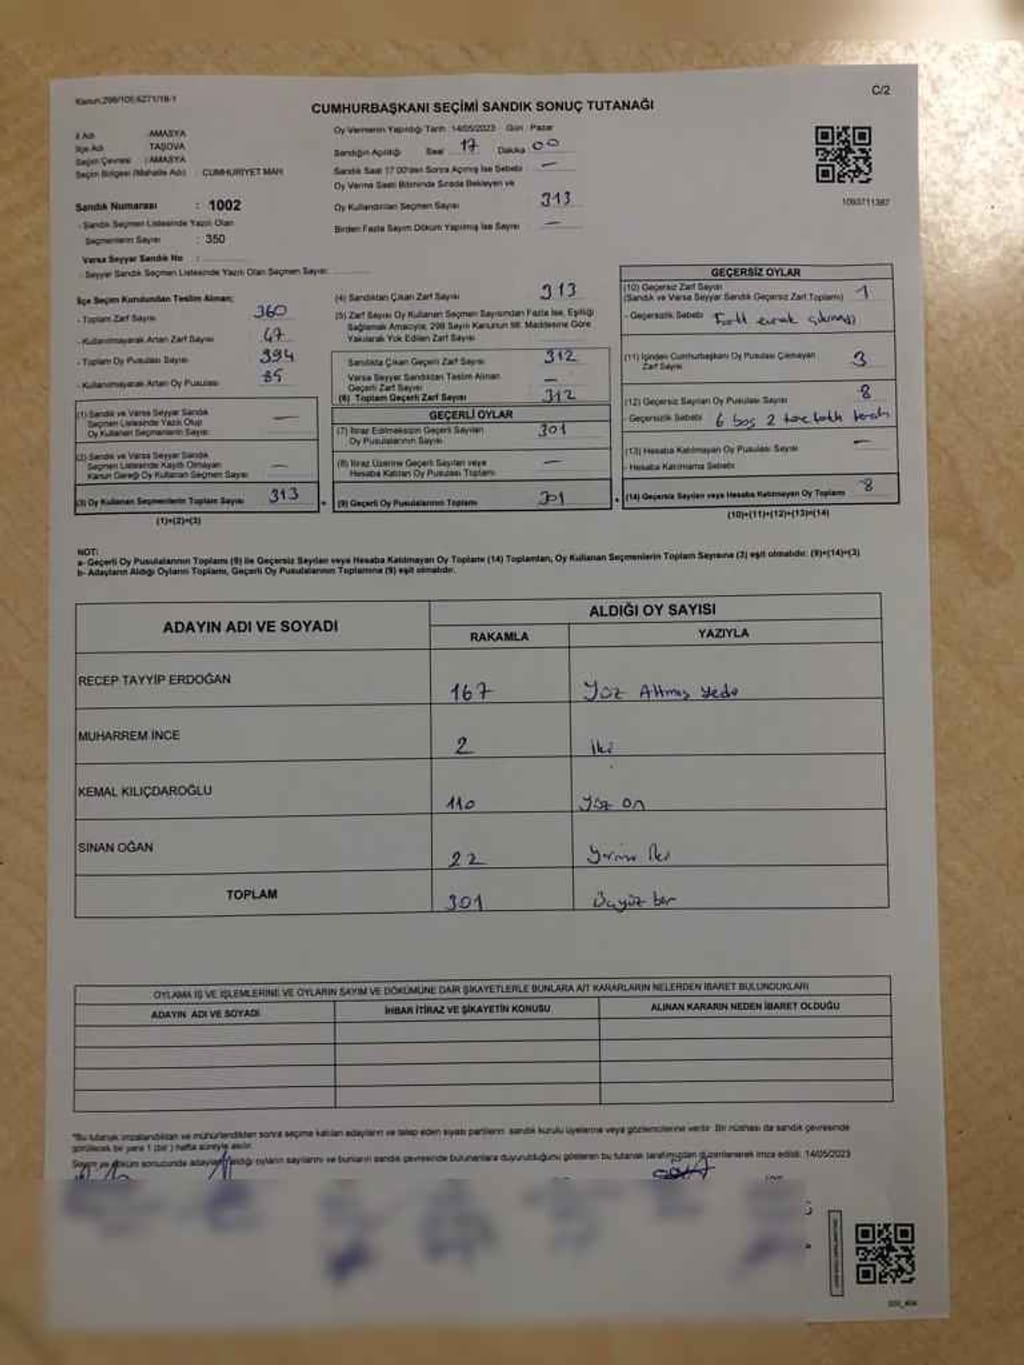 Kanun:298/105;6271/18-1
C/2
CUMHURBAŞKANI SEÇİMİ SANDIK SONUÇ TUTANAĞI
İl Adı : AMASYA
İlçe Adı : TAŞOVA
Seçim Çevresi : AMASYA
Seçim Bölgesi (Mahalle Adı) : CUMHURİYET MAH
Sandık Numarası : 1002
- Sandık Seçmen Listesinde Yazılı Olan
Seçmenlerin Sayısı : 350
Varsa Seyyar Sandık No :
- Seyyar Sandık Seçmen Listesinde Yazılı Olan Seçmen Sayısı:
Oy Vermenin Yapıldığı Tarih : 14/05/2023 - Gün : Pazar
Sandığın Açıldığı Saat 17 Dakika 00
Sandık Saat 17.00'den Sonra Açılmış İse Sebebi —
Oy Verme Saati Bitiminde Sırada Bekleyen ve
Oy Kullandırılan Seçmen Sayısı 313
Birden Fazla Sayım Döküm Yapılmış İse Sayısı —
1093711387
İlçe Seçim Kurulundan Teslim Alınan;
- Toplam Zarf Sayısı 360
- Kullanılmayarak Artan Zarf Sayısı 47
- Toplam Oy Pusulası Sayısı 394
- Kullanılmayarak Artan Oy Pusulası 85
(1) Sandık ve Varsa Seyyar Sandık
Seçmen Listesinde Yazılı Olup
Oy Kullanan Seçmenlerin Sayısı: —
(2) Sandık ve Varsa Seyyar Sandık
Seçmen Listesinde Kayıtlı Olmayan
Kanun Gereği Oy Kullanan Seçmen Sayısı: —
(3) Oy Kullanan Seçmenlerin Toplam Sayısı 313
(1)+(2)=(3)
(4) Sandıktan Çıkan Zarf Sayısı 313
(5) Zarf Sayısı Oy Kullanan Seçmen Sayısından Fazla İse, Eşitliği
Sağlamak Amacıyla, 298 Sayılı Kanunun 98. Maddesine Göre
Yakılarak Yok Edilen Zarf Sayısı
Sandıkta Çıkan Geçerli Zarf Sayısı 312
Varsa Seyyar Sandıktan Teslim Alınan
Geçerli Zarf Sayısı —
(6) Toplam Geçerli Zarf Sayısı 312
GEÇERLİ OYLAR
(7) İtiraz Edilmeksizin Geçerli Sayılan
Oy Pusulalarının Sayısı 301
(8) İtiraz Üzerine Geçerli Sayılan veya
Hesaba Katılan Oy Pusulası Toplamı —
(9) Geçerli Oy Pusulalarının Toplamı 301
GEÇERSİZ OYLAR
(10) Geçersiz Zarf Sayısı
(Sandık ve Varsa Seyyar Sandık Geçersiz Zarf Toplamı) 1
- Geçersizlik Sebebi
(11) İçinden Cumhurbaşkanı Oy Pusulası Çıkmayan
Zarf Sayısı 3
(12) Geçersiz Sayılan Oy Pusulası Sayısı 8
- Geçersizlik Sebebi 6 boş 2 tane
(13) Hesaba Katılmayan Oy Pusulası Sayısı —
- Hesaba Katılmama Sebebi
(14) Geçersiz Sayılan veya Hesaba Katılmayan Oy Toplamı 8
(10)+(11)+(12)+(13)=(14)
NOT:
a- Geçerli Oy Pusulalarının Toplamı (9) ile Geçersiz Sayılan veya Hesaba Katılmayan Oy Toplamı (14) Toplamları, Oy Kullanan Seçmenlerin Toplam Sayısına (3) eşit olmalıdır. (9)+(14)=(3)
b- Adayların Aldığı Oyların Toplamı, Geçerli Oy Pusulalarının Toplamına (9) eşit olmalıdır.
ADAYIN ADI VE SOYADI
ALDIĞI OY SAYISI
RAKAMLA YAZIYLA
RECEP TAYYİP ERDOĞAN 167 Yüz Altmış Yedi
MUHARREM İNCE 2 İki
KEMAL KILIÇDAROĞLU 110 Yüz on
SİNAN OĞAN 22 Yirmi İki
TOPLAM 301 Üçyüz bir
OYLAMA İŞ VE İŞLEMLERİNE VE OYLARIN SAYIM VE DÖKÜMÜNE DAİR ŞİKAYETLERLE BUNLARA AİT KARARLARIN NELERDEN İBARET BULUNDUKLARI
ADAYIN ADI VE SOYADI İHBAR İTİRAZ VE ŞİKAYETİN KONUSU ALINAN KARARIN NEDEN İBARET OLDUĞU
"Bu tutanak imzalandıktan ve mühürlendikten sonra seçime katılan adayların ve talep eden siyasi partilerin sandık kurulu üyelerine veya gözlemcilerine verilir. Bir nüshası da sandık çevresinde
görülecek bir yere 1 (bir) hafta süreyle asılır.
Sayım ve döküm sonucunda adayların aldığı oyların sayılarını ve bunların sandık çevresinde bulunanlara duyurulduğunu gösteren bu tutanak tarafımızdan düzenlenerek imza edildi. 14/05/2023